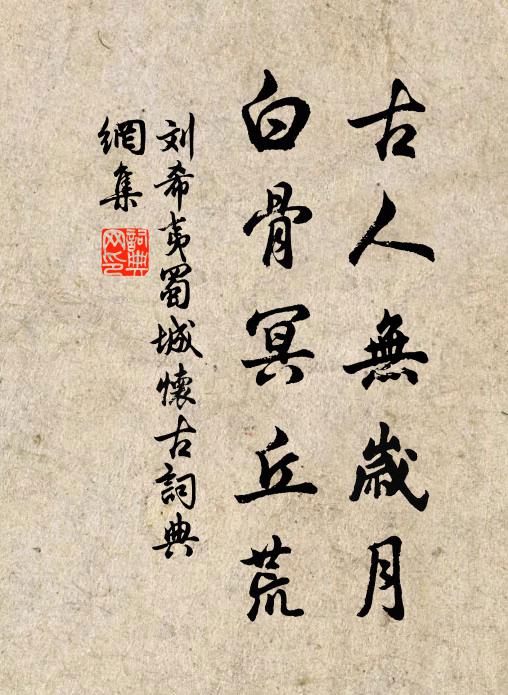 古人無歲月
白骨冥丘荒
刘希夷蜀城懷古詞典
網集
詞典網印